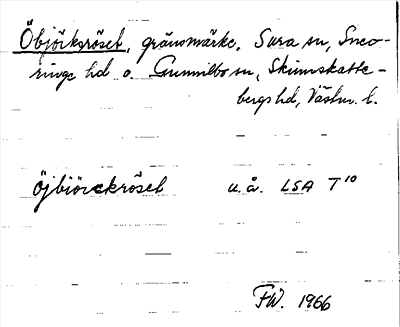 Öbjörksröset, gränsmärke, Sura sn, Sneo-
ringe hd o. Gunnilbo sn, Skinnskatte-
bergs hd, Västm. l.
Öjbiörckröset u.å. LSA T¹⁰
FW. 1966